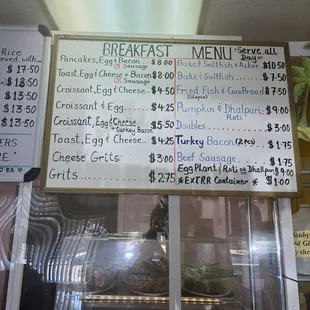 Rice
rved with
$ 17.50
$ 18.50
$ 13.50
$ 13.50
ERS
BREAKFAST MENU
Serve all Day
Pancakes, Egg + Bacon $8.00
OR Sausage
Toast, Egg & Cheese + Bacon $8.00
OR Sausage
Croissant, Egg & Cheese $4.50
Croissant & Egg $4.25
Croissant, Egg & Cheese $5.50
+ Turkey Bacon
Toast, Egg & Cheese $4.25
Cheese Grits $3.00
Grits $2.75
Bake & Saltfish + Bakes $10.50
Bake & Saltfish $7.50
Fried Fish & Coco Bread $7.50
Pumpkin & Dhalpuri $9.00
Roti
Doubles $3.00
Turkey Bacon (2pcs) $1.75
Beef Sausage $1.75
Egg Plant & Roti or Dhalpuri $9.00
*EXTRR Container* $1.00